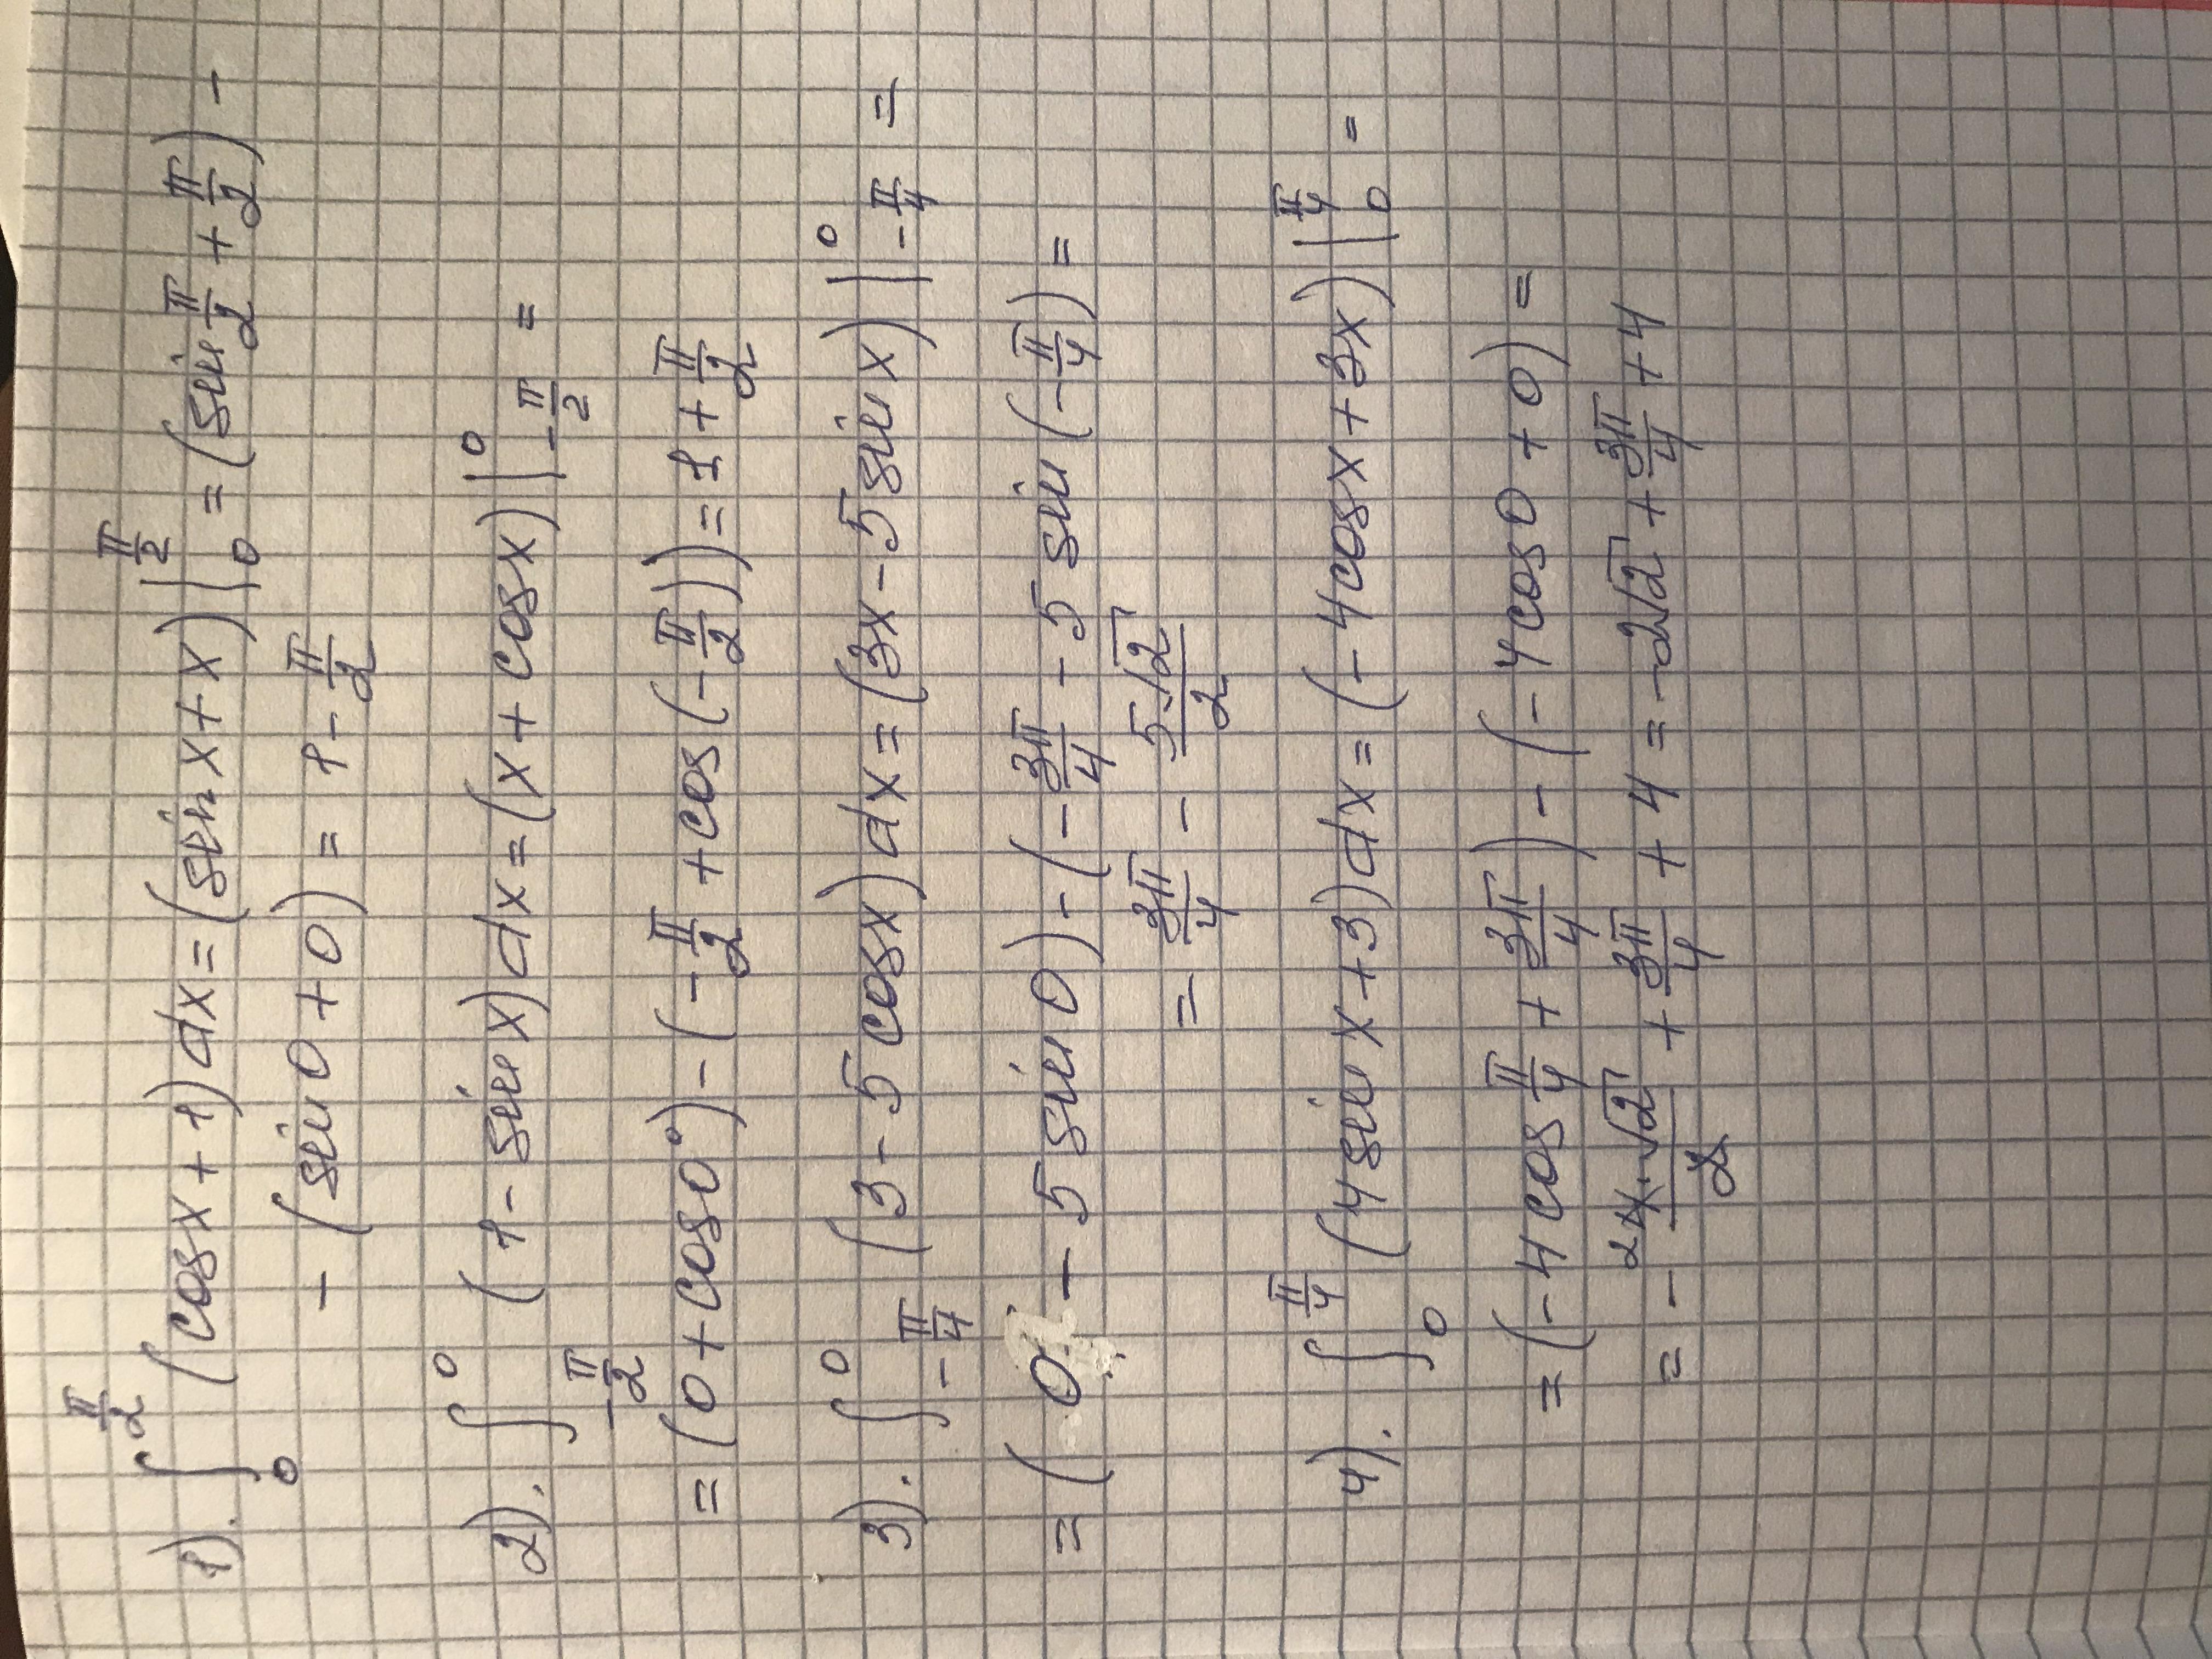 1). ∫₀^{π/2} (cosx+1)dx=(sinx+x)|₀^{π/2}=(sin π/2 + π/2)-
-(sin0+0)=1-π/2
2). ∫_{-π/2}^0 (1-sinx)dx=(x+cosx)|_{-π/2}^0=
=(0+cos0°)-(-π/2+cos(-π/2))=1+π/2
3). ∫_{-π/4}^0 (3-5cosx)dx=(3x-5sinx)|_{-π/4}^0=
=(0-5sin0)-(-3π/4-5sin(-π/4))=
=3π/4-5√2/2
4). ∫₀^{π/4} (4sinx+3)dx=(-4cosx+3x)|₀^{π/4}=
=(-4cos π/4+3π/4)-(-4cos0+0)=
=-²4·√2/2+3π/4+4=-2√2+3π/4+4